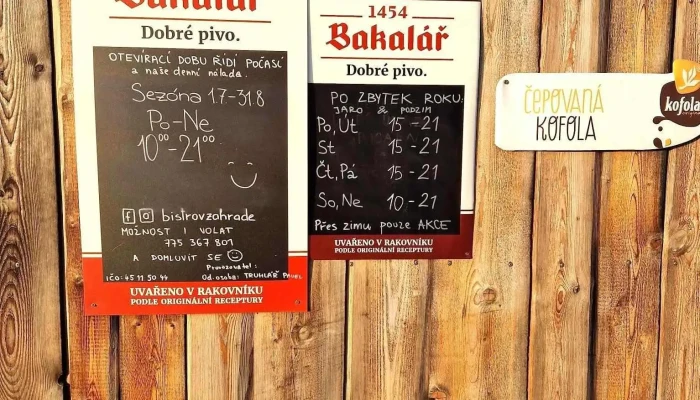 Bakalář
Dobré pivo.
OTEVÍRACÍ DOBU ŘÍDÍ POČASÍ
a naše denní nálada.
Sezóna 1.7-31.8
Po-Ne
10⁰⁰-21⁰⁰
bistrovzahrade
MOŽNOST I VOLAT
775 367 801
A DOMLUVIT SE
Provozovatel:
IČO: 45 11 50 44 Od.osoba: TRUHLÁŘ PAVEL
UVAŘENO V RAKOVNÍKU
PODLE ORIGINÁLNÍ RECEPTURY
1454
Bakalář
Dobré pivo.
PO ZBYTEK ROKU:
JARO & PODZIM
Po, Út 15-21
St 15-21
Čt, Pá 15-21
So, Ne 10-21
Přes zimu pouze AKCE
UVAŘENO V RAKOVNÍKU
PODLE ORIGINÁLNÍ RECEPTURY
ČEPOVANÁ
KOFOLA
kofola